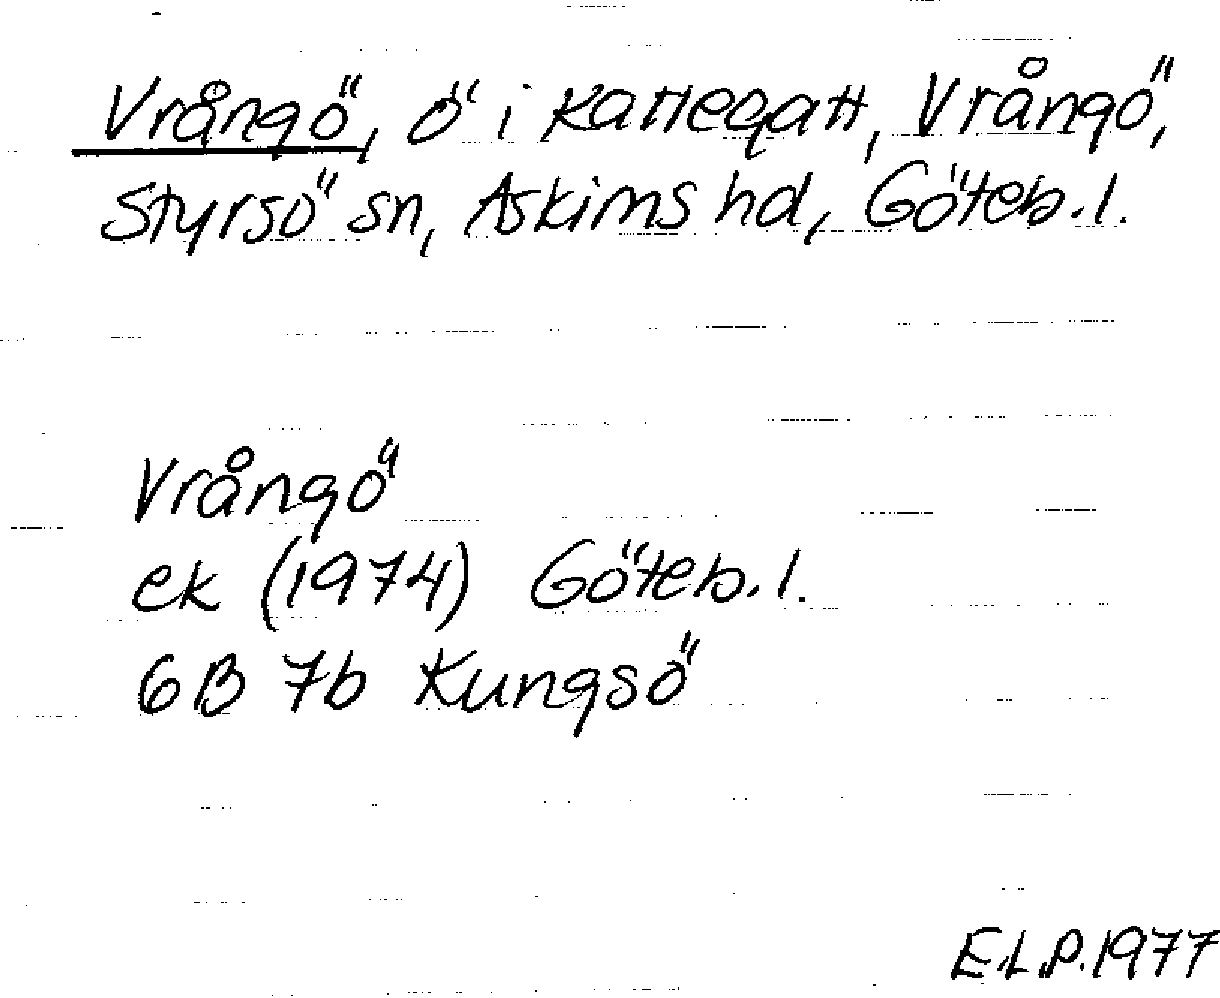 Vrångö, ö i Kattegatt, Vrångö,
Styrsö sn, Askims hd, Göteb. l.
Vrångö
ek (1974) Göteb. l.
6B 7b Kungsö
E.L.P. 1977